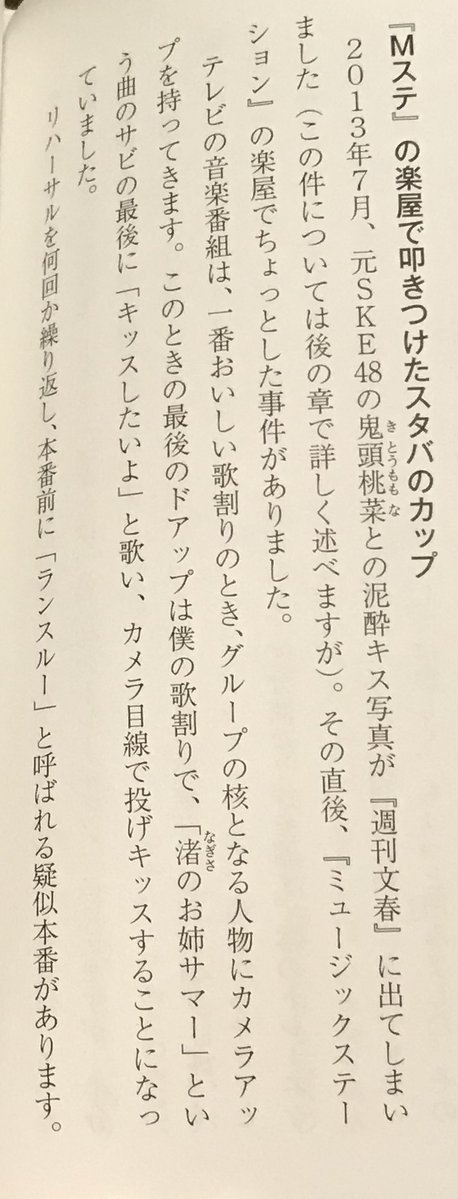 『Mステ』の楽屋で叩きつけたスタバのカップ
2013年7月、元SKE48の鬼頭桃菜との泥酔キス写真が『週刊文春』に出てしまい
ました(この件については後の章で詳しく述べますが)。その直後、『ミュージックステー
ション』の楽屋でちょっとした事件がありました。
テレビの音楽番組は、一番おいしい歌割りのとき、グループの核となる人物にカメラアッ
プを持ってきます。このときの最後のドアップは僕の歌割りで、「渚のお姉サマー」とい
う曲のサビの最後に「キッスしたいよ」と歌い、カメラ目線で投げキッスすることになっ
ていました。
リハーサルを何回か繰り返し、本番前に「ランスルー」と呼ばれる疑似本番があります。